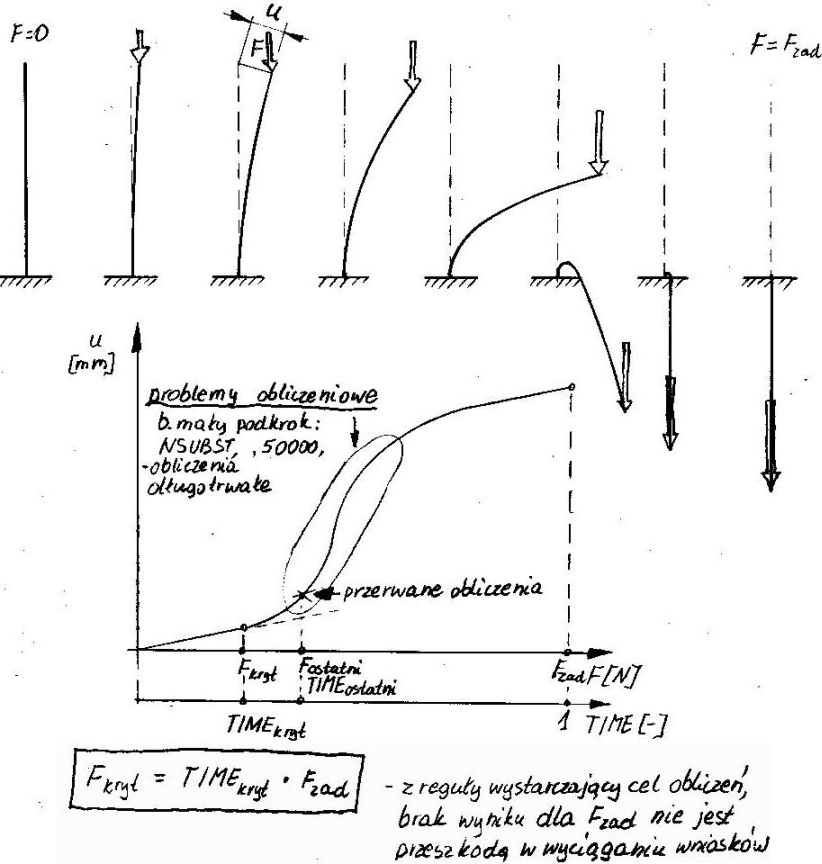 F=0
u
F
F=F_zad
u
[mm]
problemy obliczeniowe
b. mały podkrok:
NSUBST, ,50000,
-obliczenia
długotrwałe
przerwane obliczenia
F_kryt
F_ostatni
F_zad F[N]
TIME_ostatni
TIME_kryt
1
TIME [-]
F_kryt = TIME_kryt · F_zad
- z reguły wystarczający cel obliczeń,
brak wyniku dla F_zad nie jest
przeszkodą w wyciąganiu wniosków